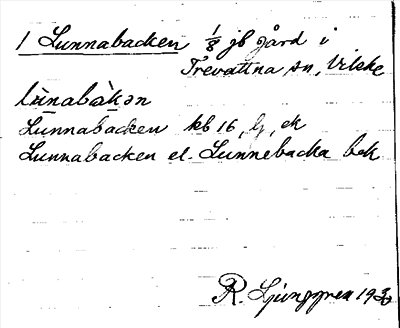 1 Lunnabacken 1/8 jb gård i
Trevattna sn, Vilske
lùnabàkən
Lunnabacken kb 16, lj, ek
Lunnabacken el. Lunnebacka bek
R. Ljunggren 1930